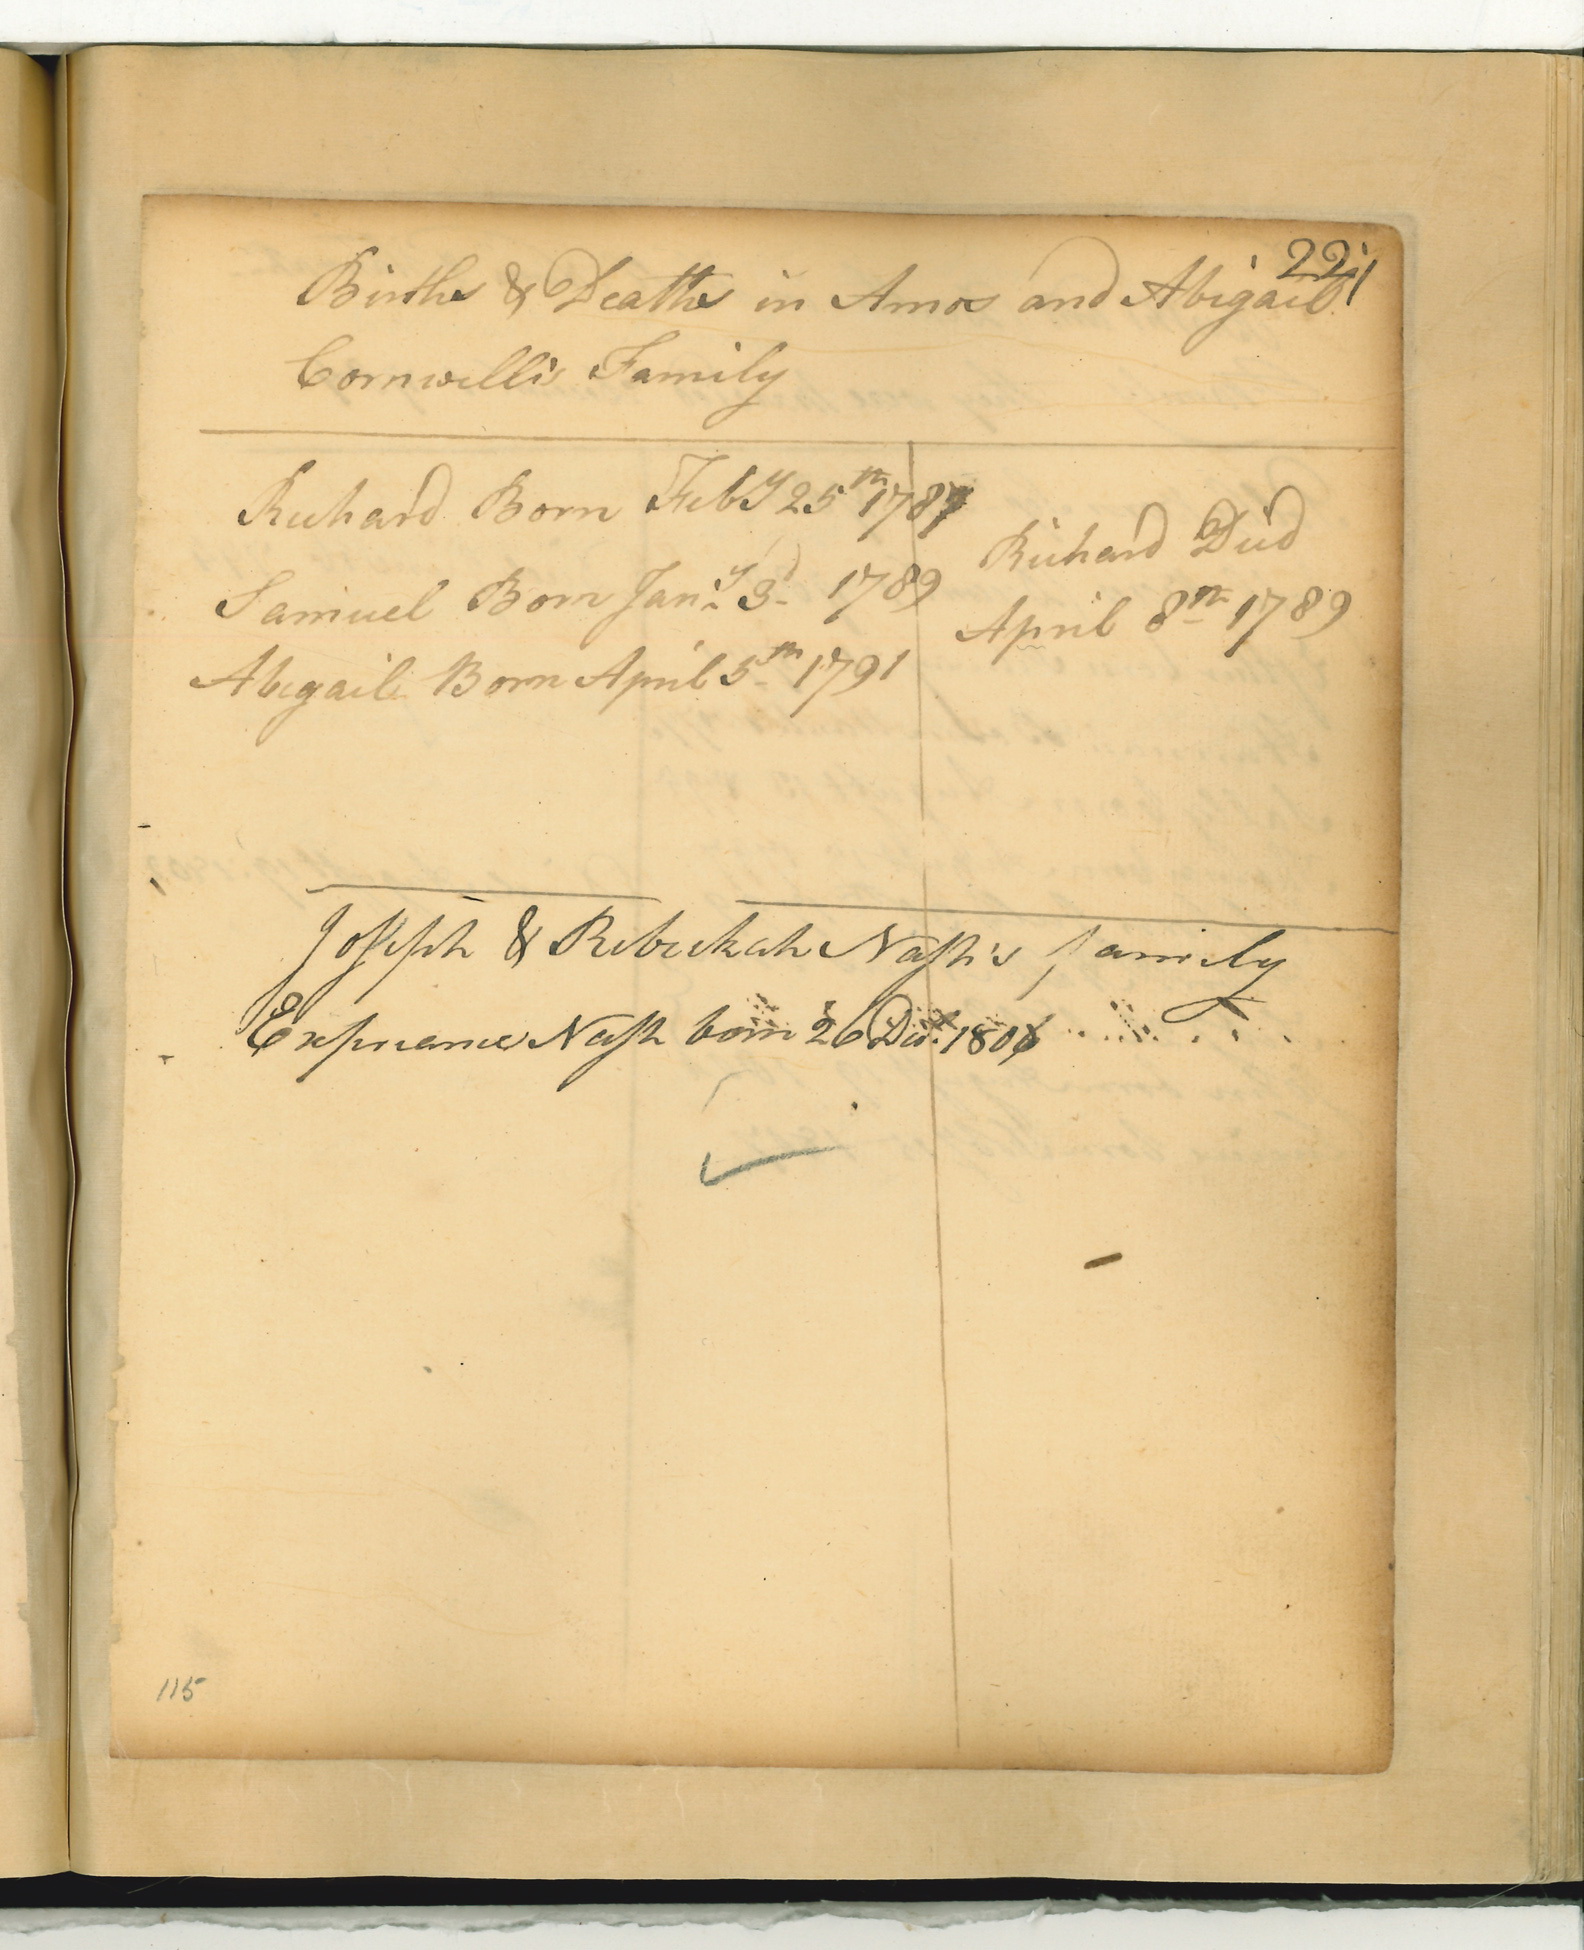 221
Births & Deaths in Amos and Abigail
Cornwell's Family
Richard Born Feb.y 25th 1787
Samuel Born Jan.y 3d 1789
Abigail Born April 5th 1791
Richard Died
April 8th 1789
Joseph & Rebeckah Nash's family
Experiance Nash born 26 Dec. 1806
115